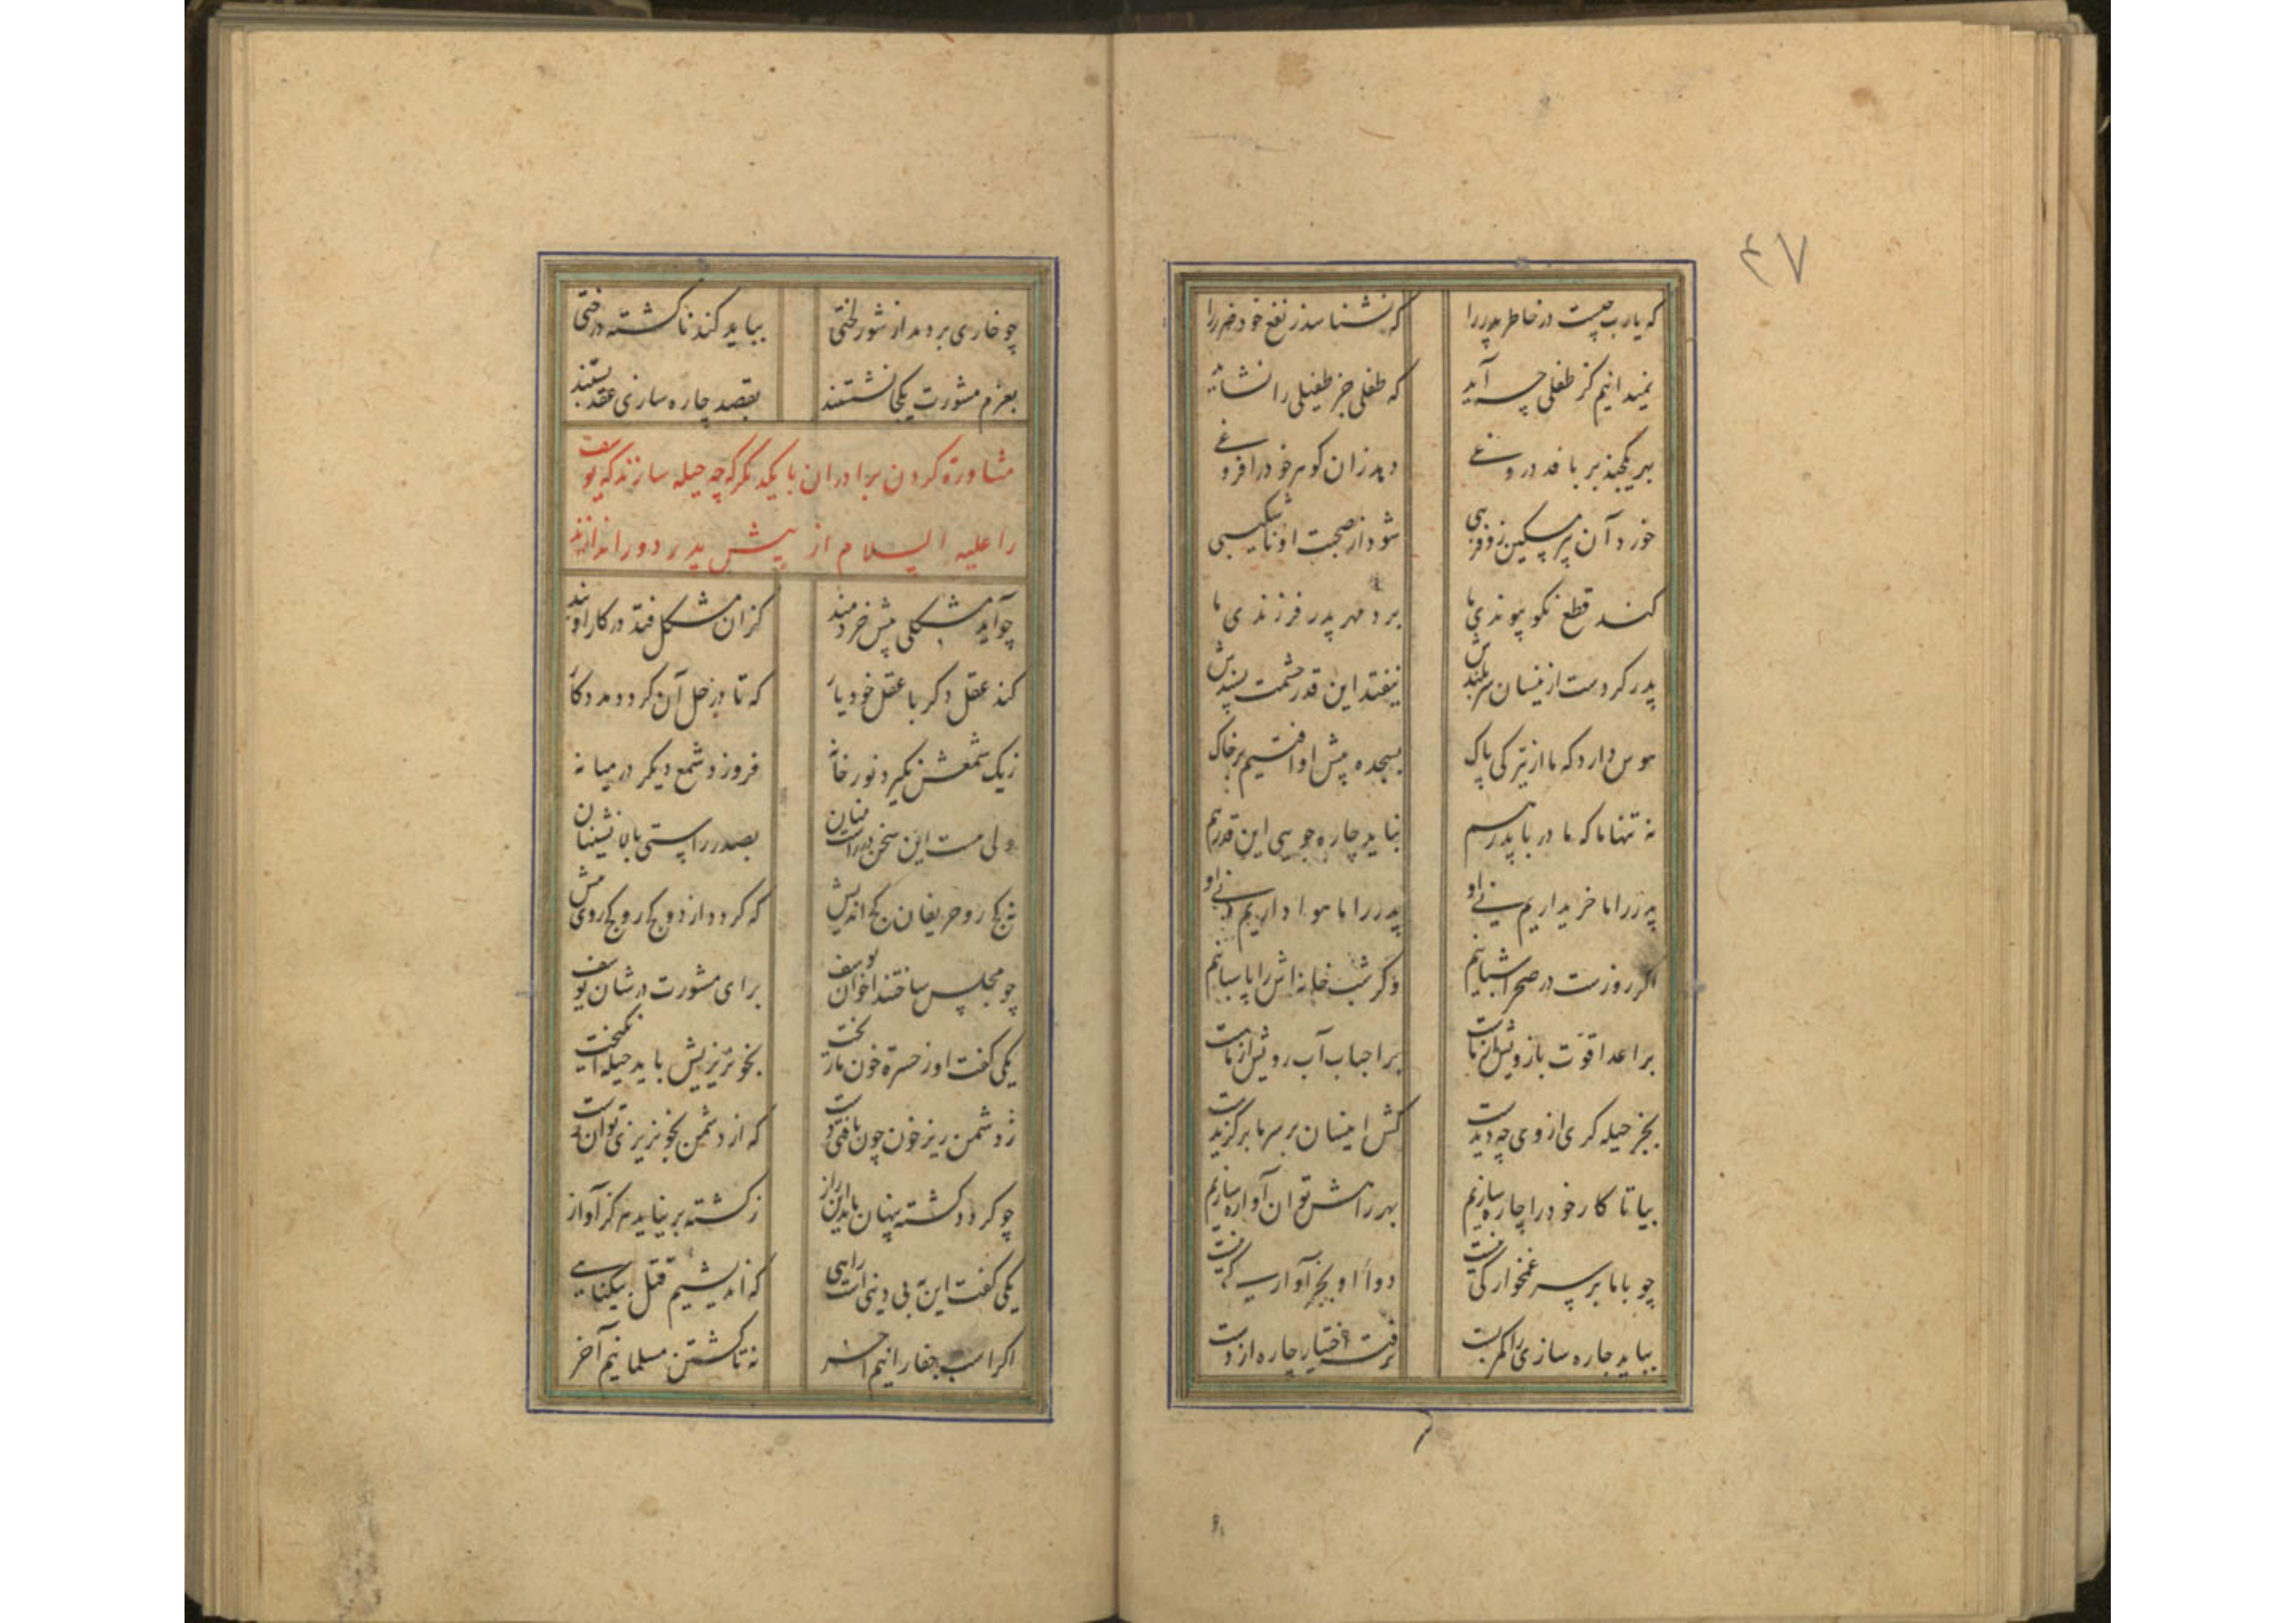 ۴۷
که یارب چیست در خاطر پدر را که نشناسد ز نفع خود ضرر را
نمیدانیم کز طفلی چه آید که طفلی جز طفیلی را نشاید
بهر یکچند بر بافد دروغی دهد زان گوهر خود را فروغی
خورد آن پیر مسکین زو فریبی شود از صحبت او ناشکیبی
کند قطع نکو پیوندی ما برد مهر پدر فرزندی ما
پدر کردست ازینسان سربلندش نیفتد این قدر حشمت پسندش
هوس دارد که ما از تیرگی پاک بسجده پیش او افتیم بر خاک
نه تنها ما که مادر با پدر هم نباید چاره جویی این قدر هم
پدر را ما خریداریم نی او پدر را ما هواداریم نی او
اگر روزست در صحرا شبانیم وگر شب خانه اش را پاسبانیم
بر اعدا قوت بازویش از ماست بر احباب آب رویش از ماست
بجز حیله گری از وی چه دیدست کش اینسان بر سر ما برگزیدست
بیا تا کار خود را چاره سازیم بهر راهش توان آواره سازیم
چو با ما بر سر غمخوارگی نیست دوای او بجز آوارگی نیست
بباید چاره سازی را کمر بست نرفته اختیار چاره از دست
چو خاری بردمد از شور لختی بباید کند ناگشته درختی
بعزم مشورت یکجا نشستند بقصد چاره سازی عقد بستند
مشاورة کردن برادران با یکدیگر که چه حیله سازند که یوسف
را علیه السلام از پیش پدر دور اندازند
چو آید مشکلی پیش خردمند کزان مشکل فتد در کار او بند
کند عقل دگر با عقل خود یار که تا در حل آن گردد مددکار
ز یک شمعش نگیرد نور خانه فروزد شمع دیگر در میانه
ولی هست این سخن در راست بینان بصدر راستی بالا نشینان
نه کج رو حریفان کج اندیش که گردد از دو کج رو کج روی بیش
چو مجلس ساختند اخوان یوسف برای مشورت در شان یوسف
یکی گفت او ز حسرة خون ما ریخت بخونریزیش باید حیله انگیخت
ز دشمن ریز خون چون یافتی دست که از دشمن بخونریزی توان رست
چو گردد کشته پنهان ماند این راز ز کشته بر نیاید هرگز آواز
یکی گفت این به بی دینی است راهی که اندیشیم قتل بیگناهی
اگر اسب جفا رانیم آخر نه تا کشتن مسلمانیم آخر